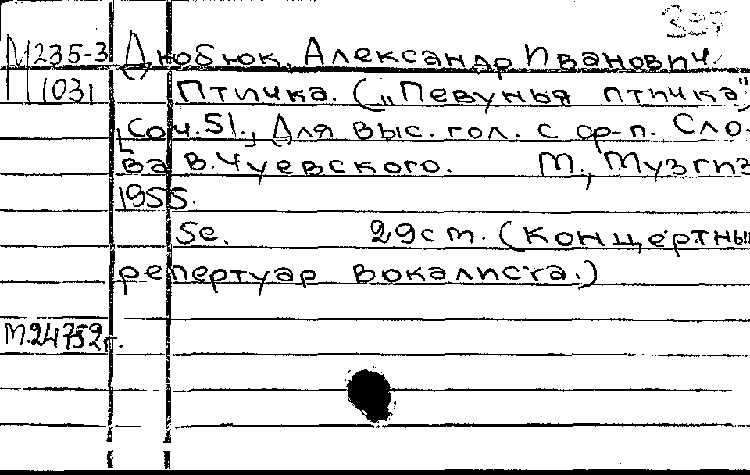 М235-3 Дюбюк, Александр Иванович.
П 1031 Птичка. („Певунья птичка"
Соч.51., Для выс. гол. с ф-п. Сло-
ва В. Чуевского. М., Музгиз
1955.
5с. 29см. (Концертный
репертуар вокалиста.)
М.24752г.